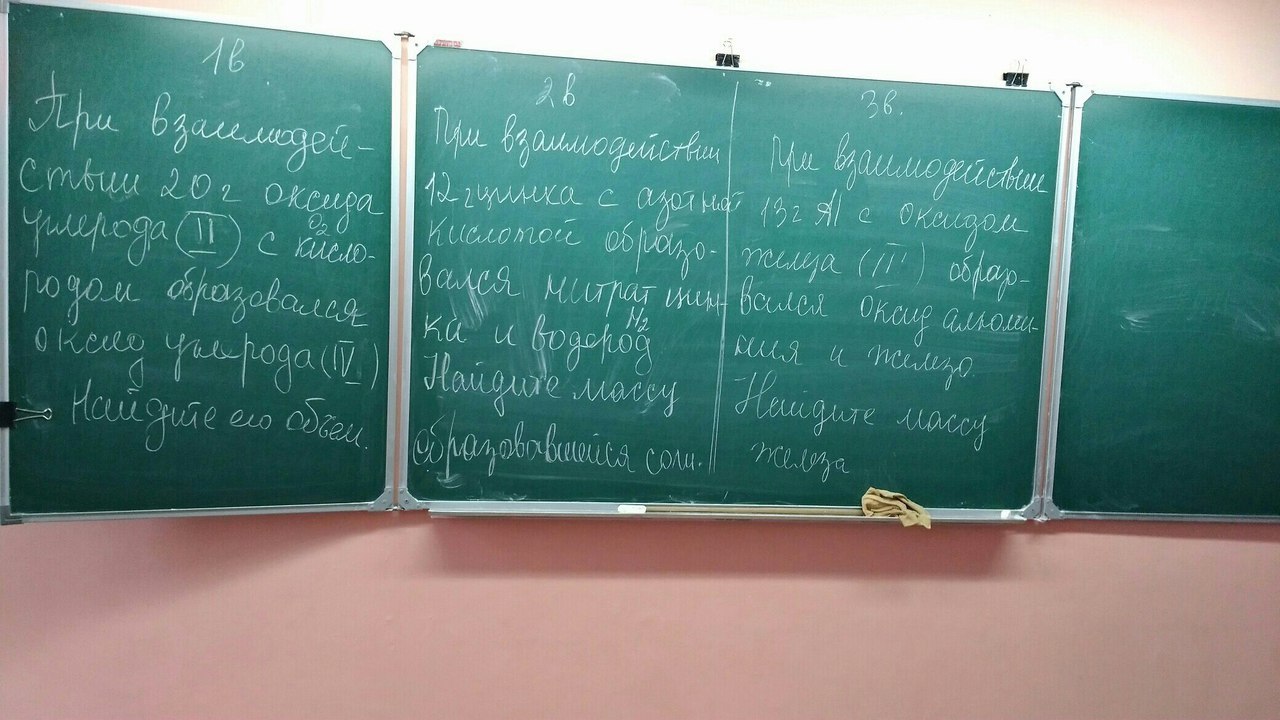 1в
При взаимодей-
ствии 20 г оксида
углерода (II) с кисло-
O2
родом образовался
оксид углерода (IV)
Найдите его объем.
2в
При взаимодействии
12 г цинка с азотной
кислотой образо-
вался нитрат цин-
ка и водород
H2
Найдите массу
образовавшейся соли.
3в.
При взаимодействии
13 г Al с оксидом
железа (II) образо-
вался оксид алюми-
ния и железо
Найдите массу
железа